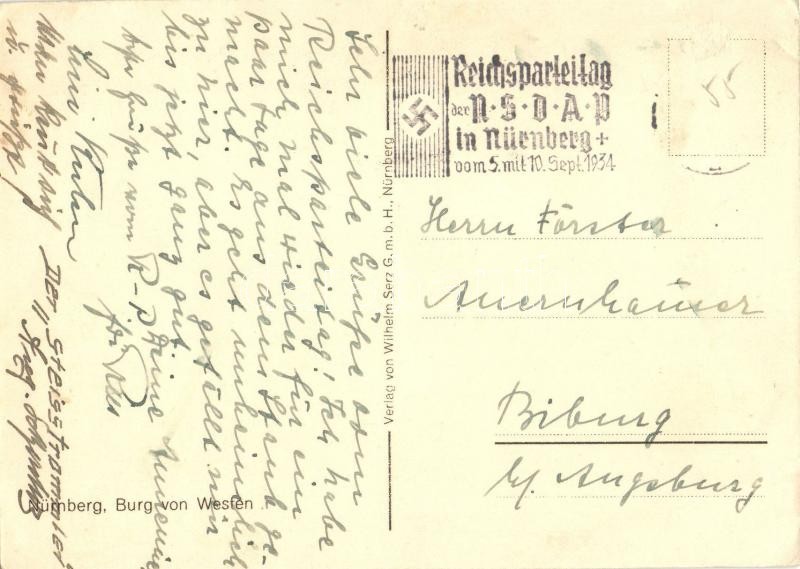 Sehr viele Grüße vom
Reichsparteitag! Ich habe
mich mal wieder für ein
paar Tage aus dem Staub ge-
macht. Es geht unheimlich
zu hier, aber es gefällt mir
bis jetzt ganz gut.
Deine
Der Steisstrommler
Nürnberg, Burg von Westen
Verlag von Wilhelm Serz G.m.b.H., Nürnberg
Reichsparteitag
der N·S·D·A·P
in Nürnberg +
vom 5. mit 10. Sept. 1934
55
Herrn Förster
Auernhauser
Biburg
b/ Augsburg